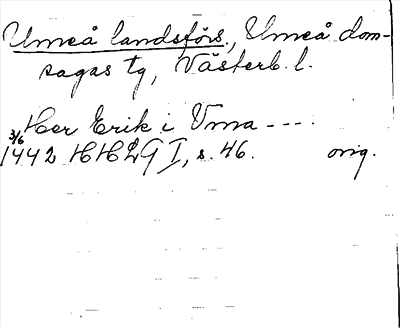 Umeå landsförs., Umeå dom-
sagas tg, Västerb. l.
Her Erik i Vma ----
3/6 1442 HHLG I, s. 46. orig.